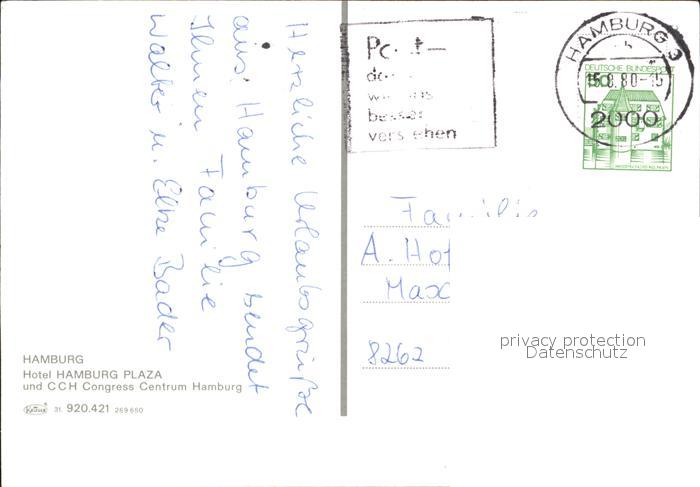 Herzliche Urlaubsgrüße
aus Hamburg sendet
Ihnen Familie
Walter u. Elke Bader
HAMBURG
Hotel HAMBURG PLAZA
und CCH Congress Centrum Hamburg
Krüger 31. 920.421 269 650
besser
HAMBURG
80
2000
DEUTSCHE BUNDESPOST
A. Hof
8262
privacy protection
Datenschutz